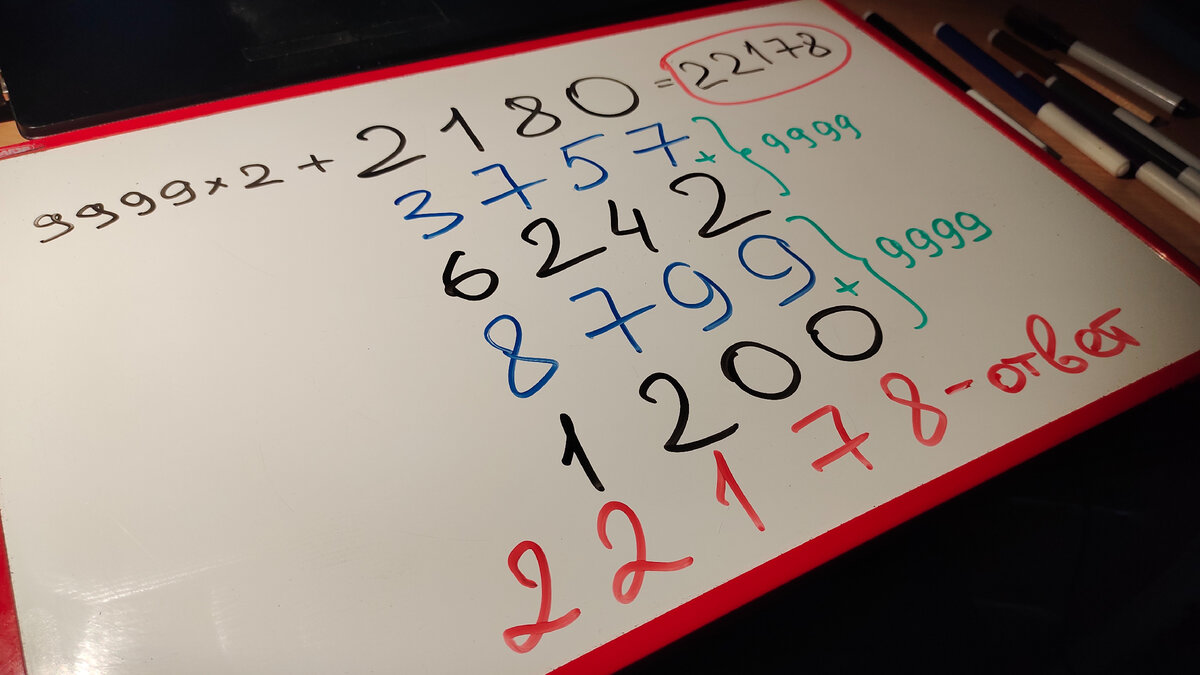 9999×2+2180=22178
3757
+ } 9999
6242
8799
+ } 9999
1200
22178-ответ